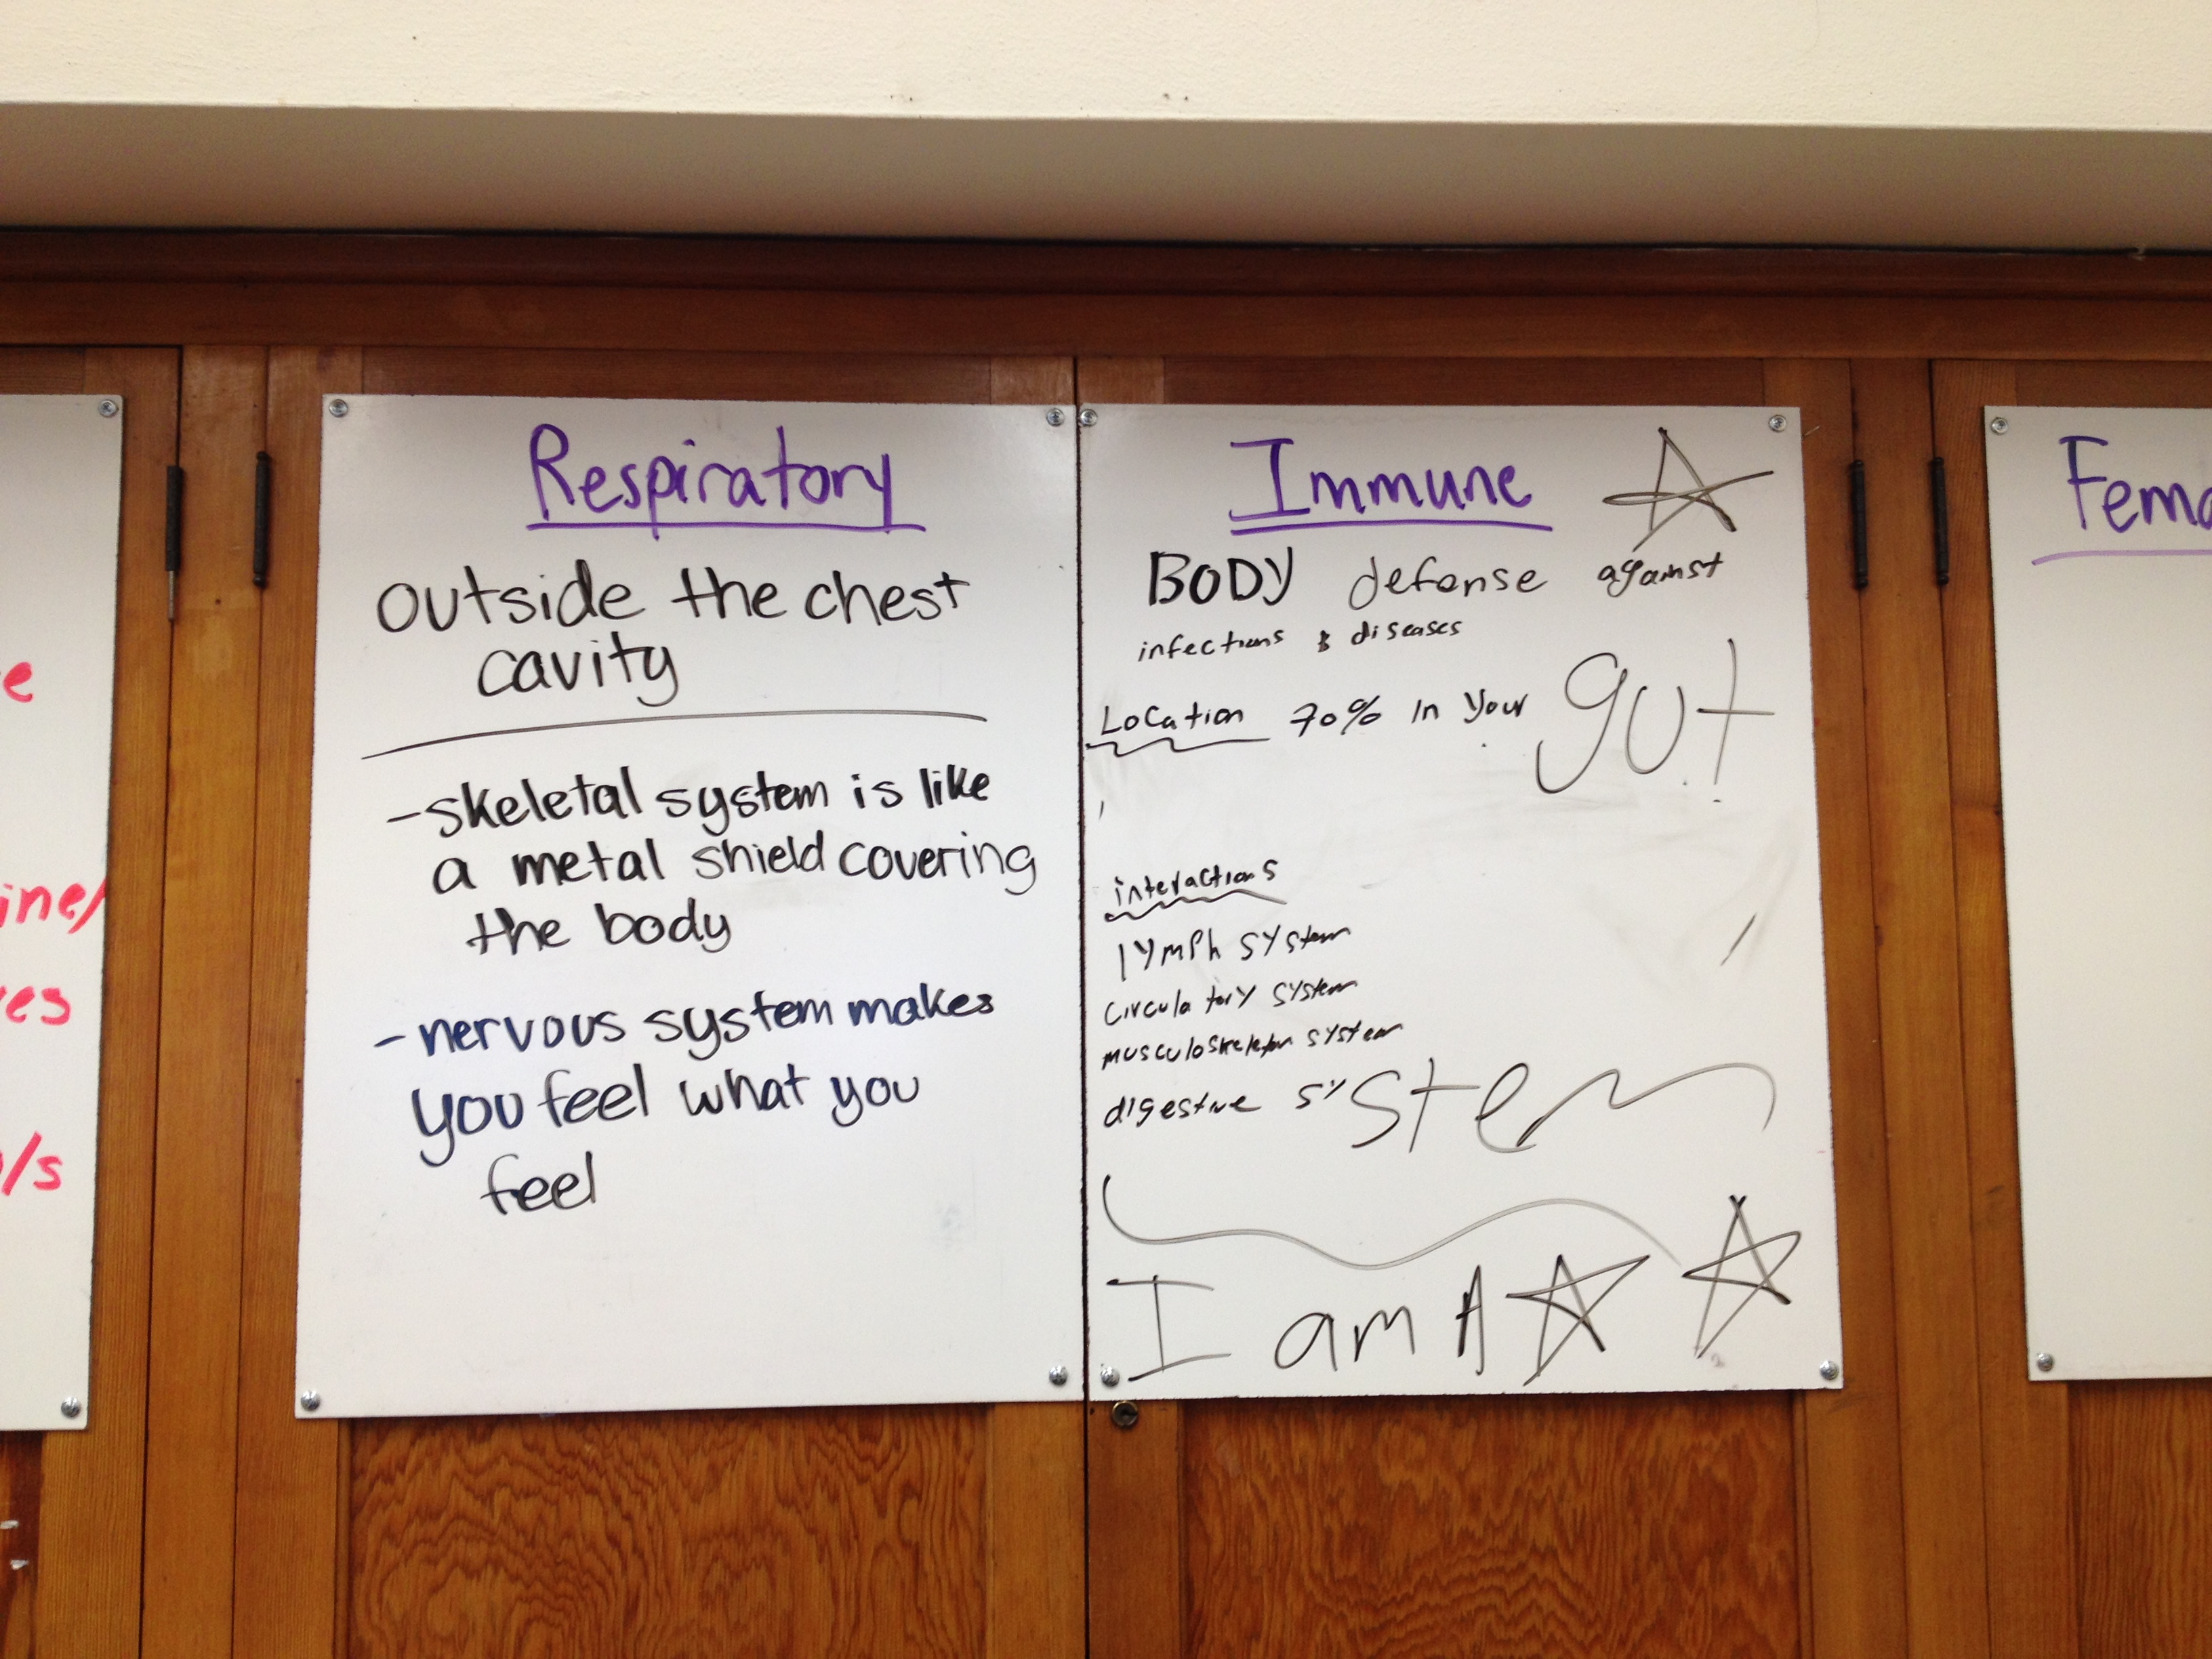 e
ine/
es
/s
Respiratory
outside the chest
cavity
-skeletal system is like
a metal shield covering
the body
-nervous system makes
you feel what you
feel
Immune
BODY defense against
infections & diseases
Location 70% in your gut
interactions
lymph system
circulatory system
musculoskeleton system
digestive system
I am A
Fema